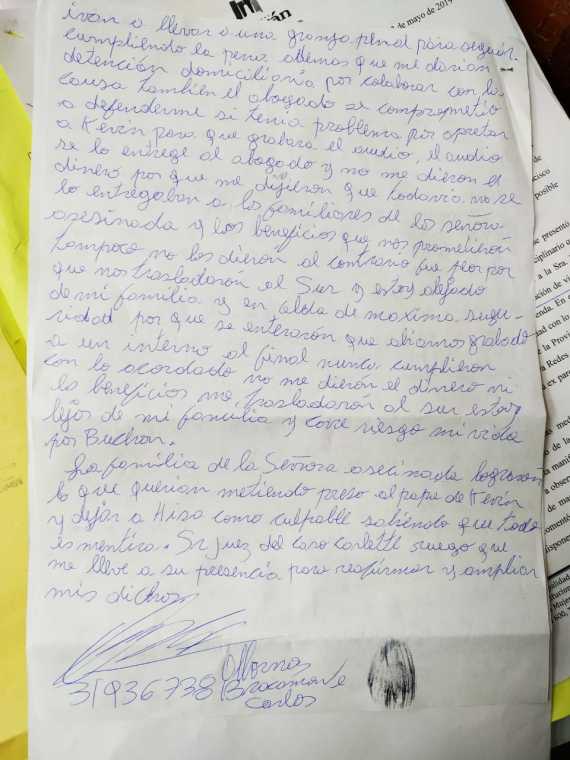 ivan a llevar a una granja penal para seguir.
cumpliendo la pena. ademas que me darian
detención domiciliaria por colaborar con la
causa también el abogado se comprometio
a defenderme si tenia problema por apretar
a Kevin para que grabara el audio, el audio
se lo entrege al abogado y no me dieron el
dinero por que me dijieron que todavia no se
lo entregaban a los familiares de la señora
asesinada y los beneficios que nos prometieron
tampoco no los dieron al contrario fue peor por
que nos trasladaron al Sur y estoy alejado
de mi familia y en celda de maxima segu-
ridad por que se enteraron que abiamos grabado
a un interno al final nunca cumplieron
con lo acordado no me dieron el dinero ni
los beneficios me trasladaron al sur estoy
lejos de mi familia y corre riesgo mi vida
por Buchon.
La familia de la Señora asecinada lograron
lo que querian metiendo preso al papa de Kevin
y dejar a Hisa como culpable sabiendo que todo
es mentira. Sr juez del caso Carlette ruego que
me lleve a su presencia para reafirmar y ampliar
mis dichos
31936738
Bracamonte
Carlos
de mayo de 2019
cisco
posible
se presentó
ciplinario
a la Sra.
ción de vi
que res
enda. En
dad con lo
la Provi
Redes
ex par
med